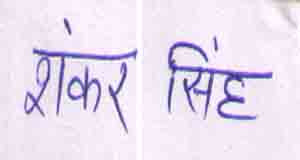 शंकर सिंह